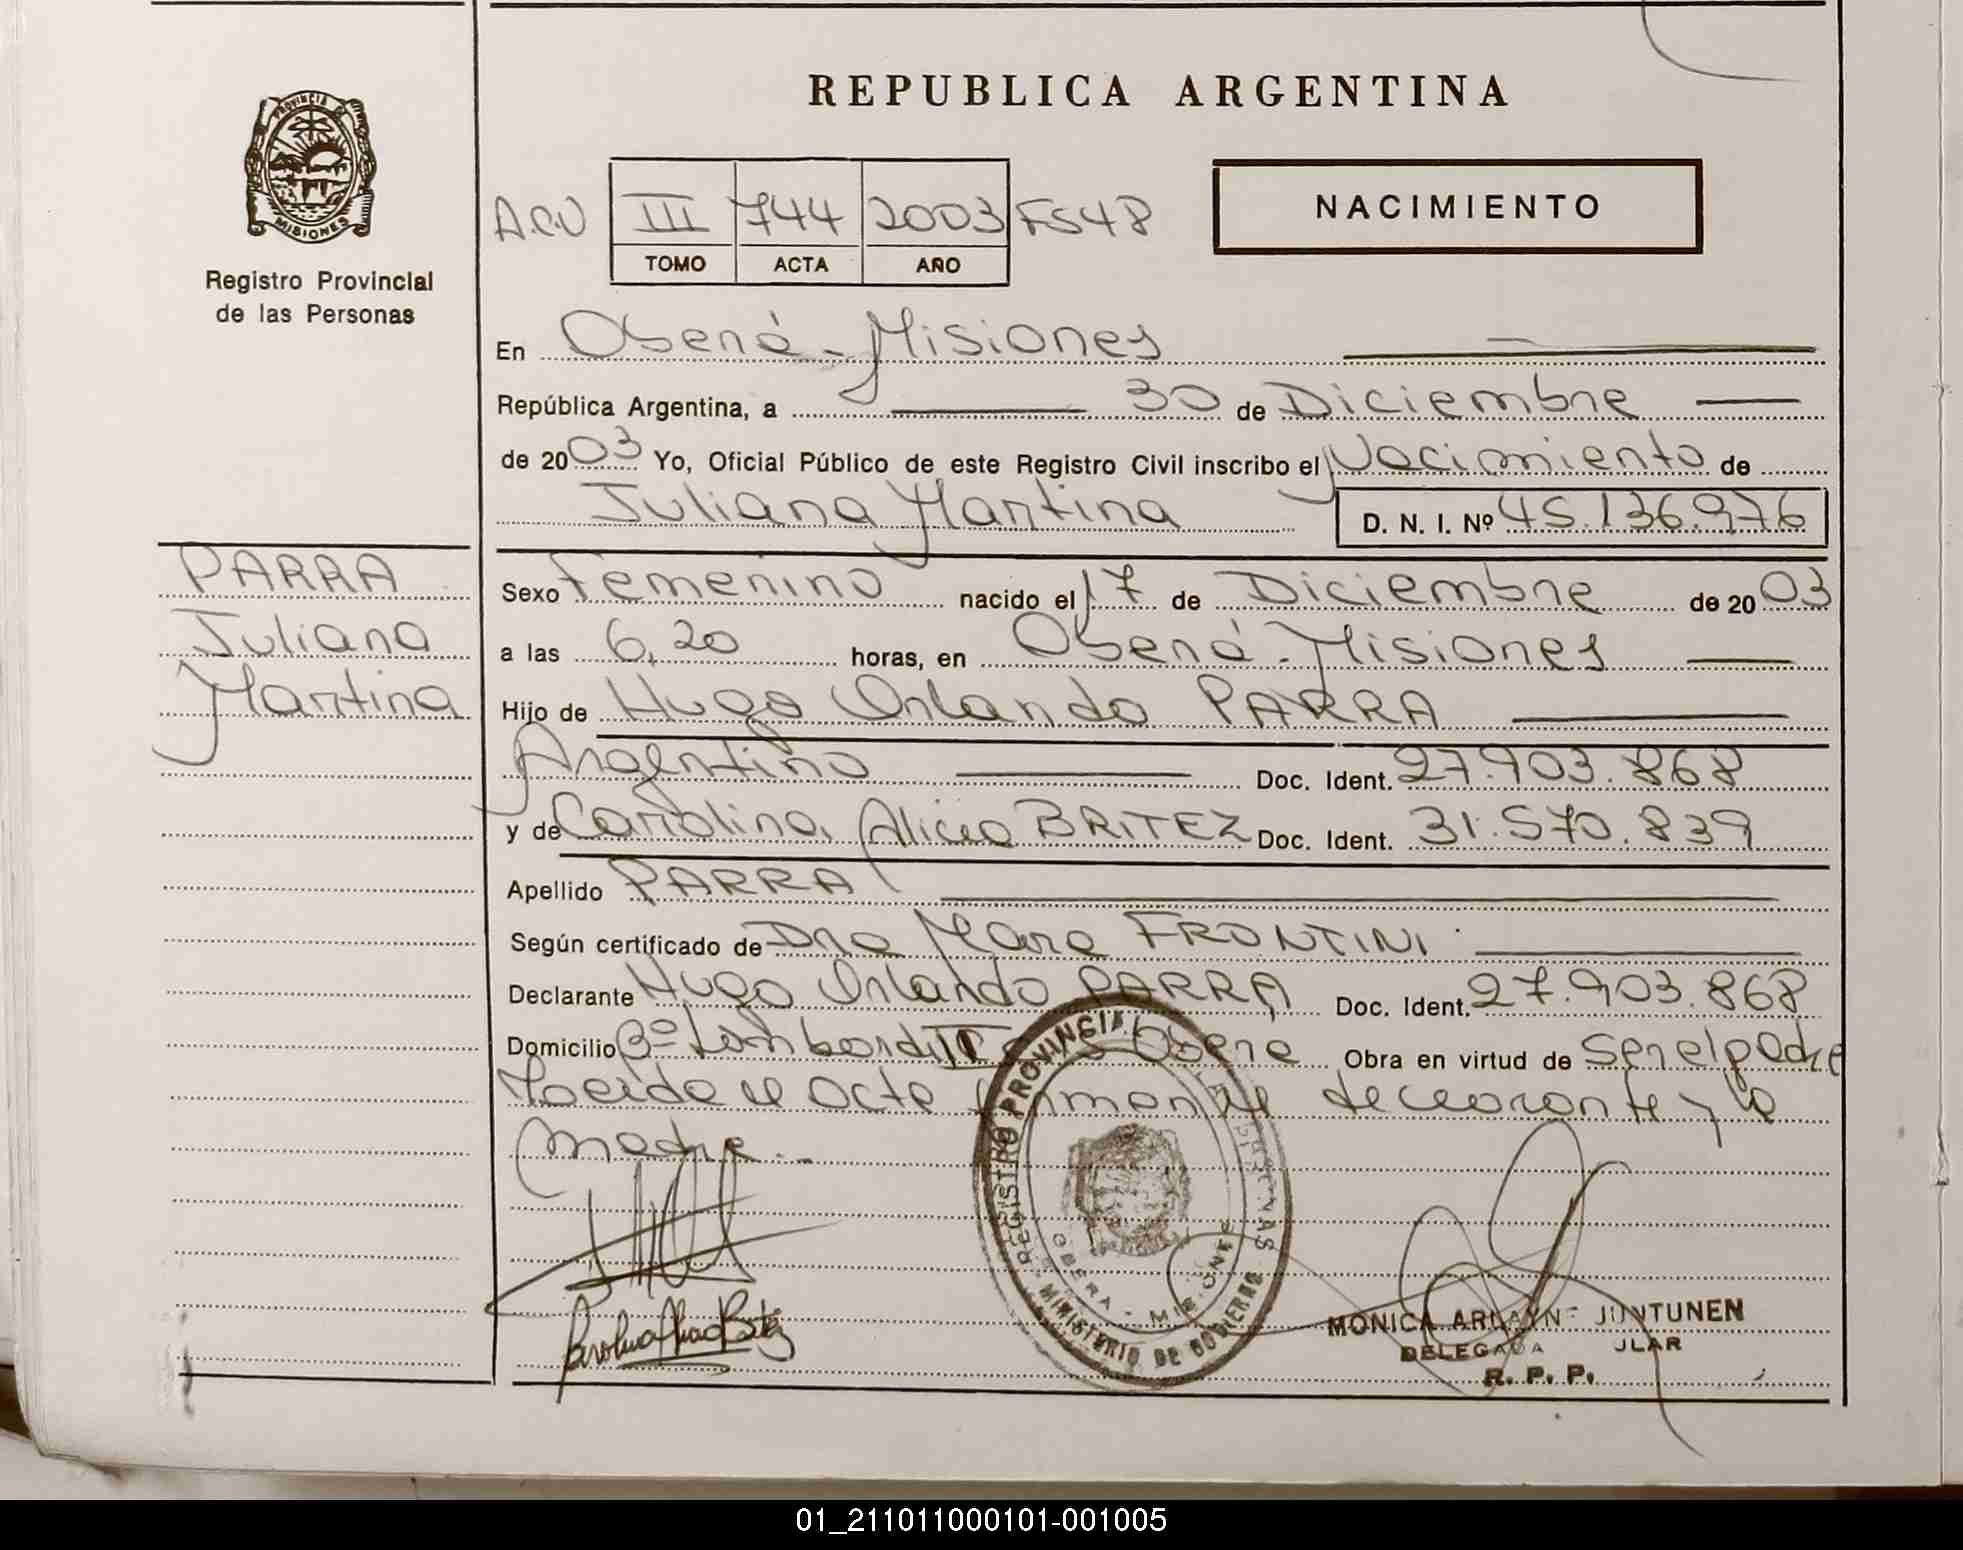 REPUBLICA ARGENTINA
PROVINCIA
MISIONES
Registro Provincial
de las Personas
A.C.U III 744 2003 FS48
TOMO ACTA AÑO
NACIMIENTO
En Oberá - Misiones
República Argentina, a 30 de Diciembre
de 2003 Yo, Oficial Público de este Registro Civil inscribo el Nacimiento de
Juliana Martina D. N. I. Nº 45.136.976
PARRA
Juliana
Martina
Sexo Femenino nacido el 17 de Diciembre de 2003
a las 6,20 horas, en Oberá - Misiones
Hijo de Hugo Orlando PARRA
Argentino Doc. Ident. 27.903.868
y de Carolina Alicia BRITEZ Doc. Ident. 31.570.839
Apellido PARRA
Según certificado de Dra Mara FRONTINI
Declarante Hugo Orlando PARRA Doc. Ident. 27.903.868
Domicilio Bº Oberá Obra en virtud de ser el padre
acta declarante y la
madre.-
REGISTRO PROVINCIAL DE LAS PERSONAS
OBERA - MISIONES
MINISTERIO DE GOBIERNO
MONICA JUNTUNEN
DELEGADA
R. P. P.
01_211011000101-001005